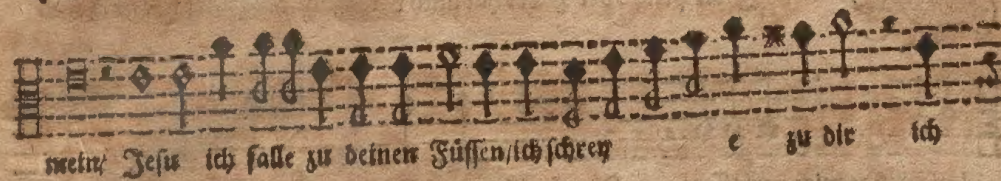 mein/ Jesu ich falle zu deinen Füssen/ich schrey e zu dir ich